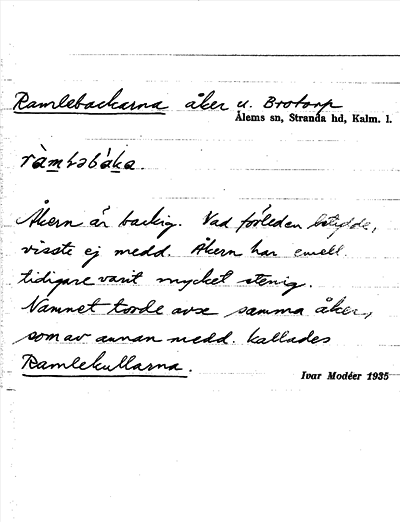 Ramlebackarna åker u. Brotorp
Ålems sn, Stranda hd, Kalm. l.
ràmləbáka.
Åkern är backig. Vad förleden betydde,
visste ej medd. Åkern har emell.
tidigare varit mycket stenig.
Namnet torde avse samma åker,
som av annan medd. kallades
Ramlekullarna.
Ivar Modéer 1935